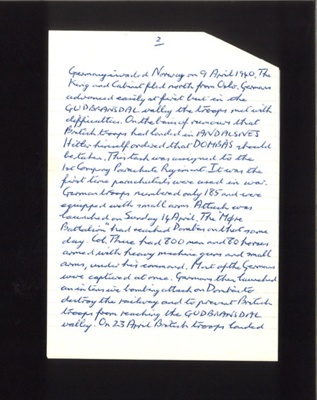 2
Germany invaded Norway on 9 April 1940. The
King and Cabinet fled north from Oslo. Germans
advanced easily at first but in the
GUDBRANSDAL valley the troops met with
difficulties. On the basis of rumours that
British troops had landed in ANDALSNES
Hitler himself ordered that DOMBÅS should
be taken. This task was assigned to the
1st Company Parachute Regiment. It was the
first time parachutists were used in war.
German troops numbered only 185 and were
equipped with small arms. Attack was
launched on Sunday 14 April. The "Møre
Battalion" had reached Dombås on that same
day. Col. There had 800 men and 80 horses
armed with heavy machine guns and small
arms, under his command. Most of the Germans
were captured at once. Germans then launched
an intensive bombing attack on Dombås to
destroy the railway and to prevent British
troops from reaching the GUDBRANSDAL
valley. On 23 April British troops landed